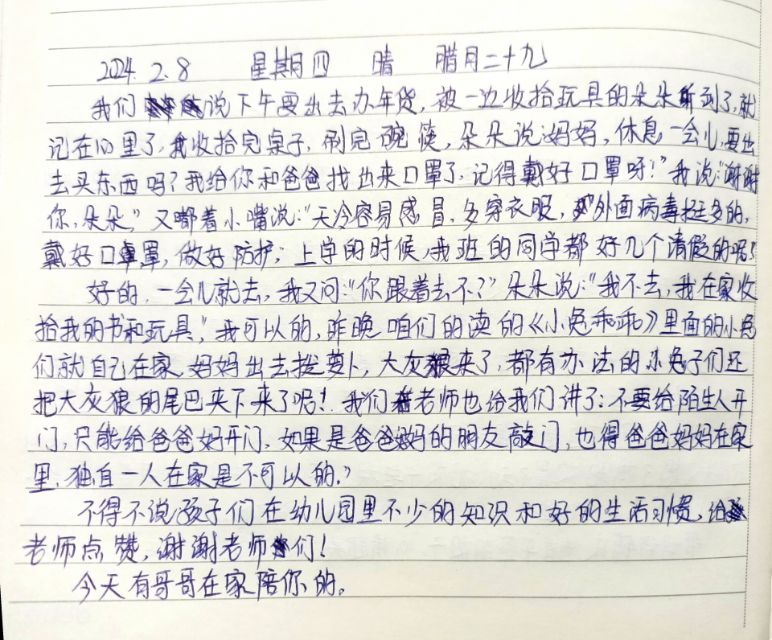 2024. 2. 8 星期四 晴 腊月二十九
我们说下午要出去办年货, 被一边收拾玩具的朵朵听到了, 就
记在心里了, 我收拾完桌子, 刷完碗筷, 朵朵说:妈妈, 休息一会儿, 要出
去买东西吗? 我给你和爸爸找出来口罩了, 记得戴好口罩呀!" 我说:"谢谢
你, 朵朵," 又嘟着小嘴说:"天冷容易感冒, 多穿衣服, 外面病毒挺多的,
戴好口罩, 做好防护; 上学的时候, 我班的同学都好几个请假的呢!
好的, 一会儿就去, 我又问:"你跟着去不?" 朵朵说:"我不去, 我在家收
拾我的书和玩具", 我可以的, 昨晚咱们的读的《小兔乖乖》里面的小兔
们就自己在家, 妈妈出去拔萝卜, 大灰狼来了, 都有办法的, 小兔子们还
把大灰狼的尾巴夹下来了呢! 我们老师也给我们讲了: 不要给陌生人开
门, 只能给爸爸妈开门, 如果是爸爸妈的朋友敲门, 也得爸爸妈妈在家
里, 独自一人在家是不可以的,"
不得不说孩子们在幼儿园里不少的知识和好的生活习惯, 给
老师点赞, 谢谢老师们!
今天有哥哥在家陪你的。